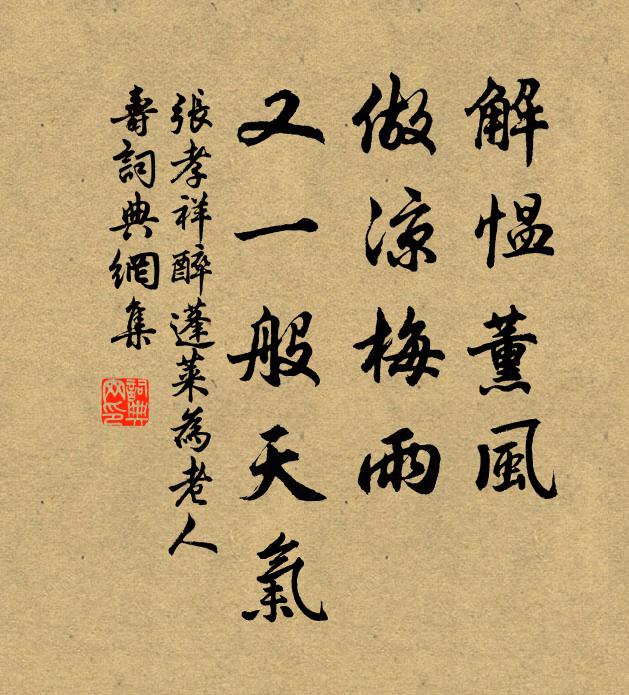 解愠薰風
做涼梅雨
又一般天氣
張孝祥醉蓬萊為老人
壽詞典網集
詞典
网印